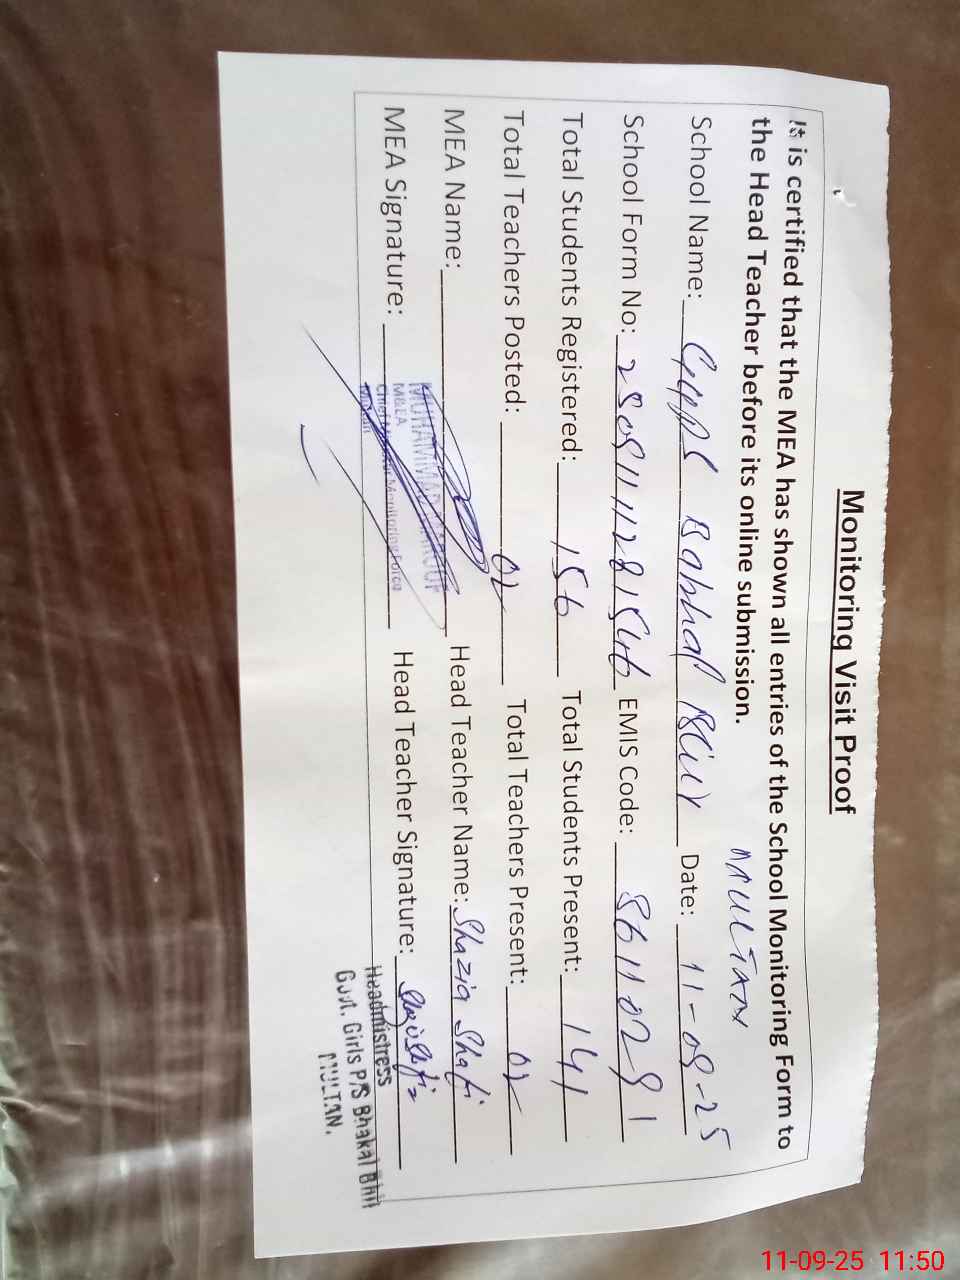 Monitoring Visit Proof
It is certified that the MEA has shown all entries of the School Monitoring Form to
the Head Teacher before its online submission.
MULTAN
School Name: GGPS Bahhal Bhir Date: 11-09-25
School Form No: EMIS Code:
Total Students Registered: 156 Total Students Present: 141
Total Teachers Posted: 02 Total Teachers Present: 02
MEA Name: Head Teacher Name: Shazia Shafi
MUHAMMAD
M&EA
Chief Monitoring Force
Multan
MEA Signature: Head Teacher Signature:
Headmistress
Govt. Girls P/S Bhakal Bhir
MULTAN.
11-09-25 11:50